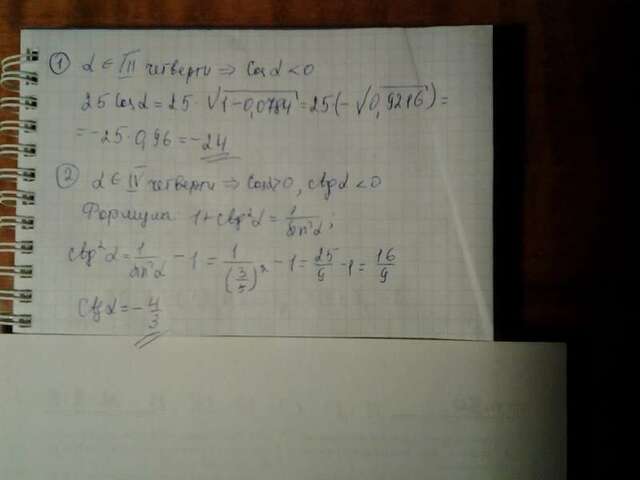 ① α ∈ III четверти ⇒ Cosα < 0
25 Cosα = 25 · √1-0,0784 = 25(-√0,9216) =
= -25·0,96 = -24
② α ∈ IV четверти ⇒ Cosα>0, ctgα < 0
Формула 1+ctg²α = 1/sin²α;
ctg²α = 1/sin²α - 1 = 1/(3/5)² - 1 = 25/9 - 1 = 16/9
Ctgα = -4/3